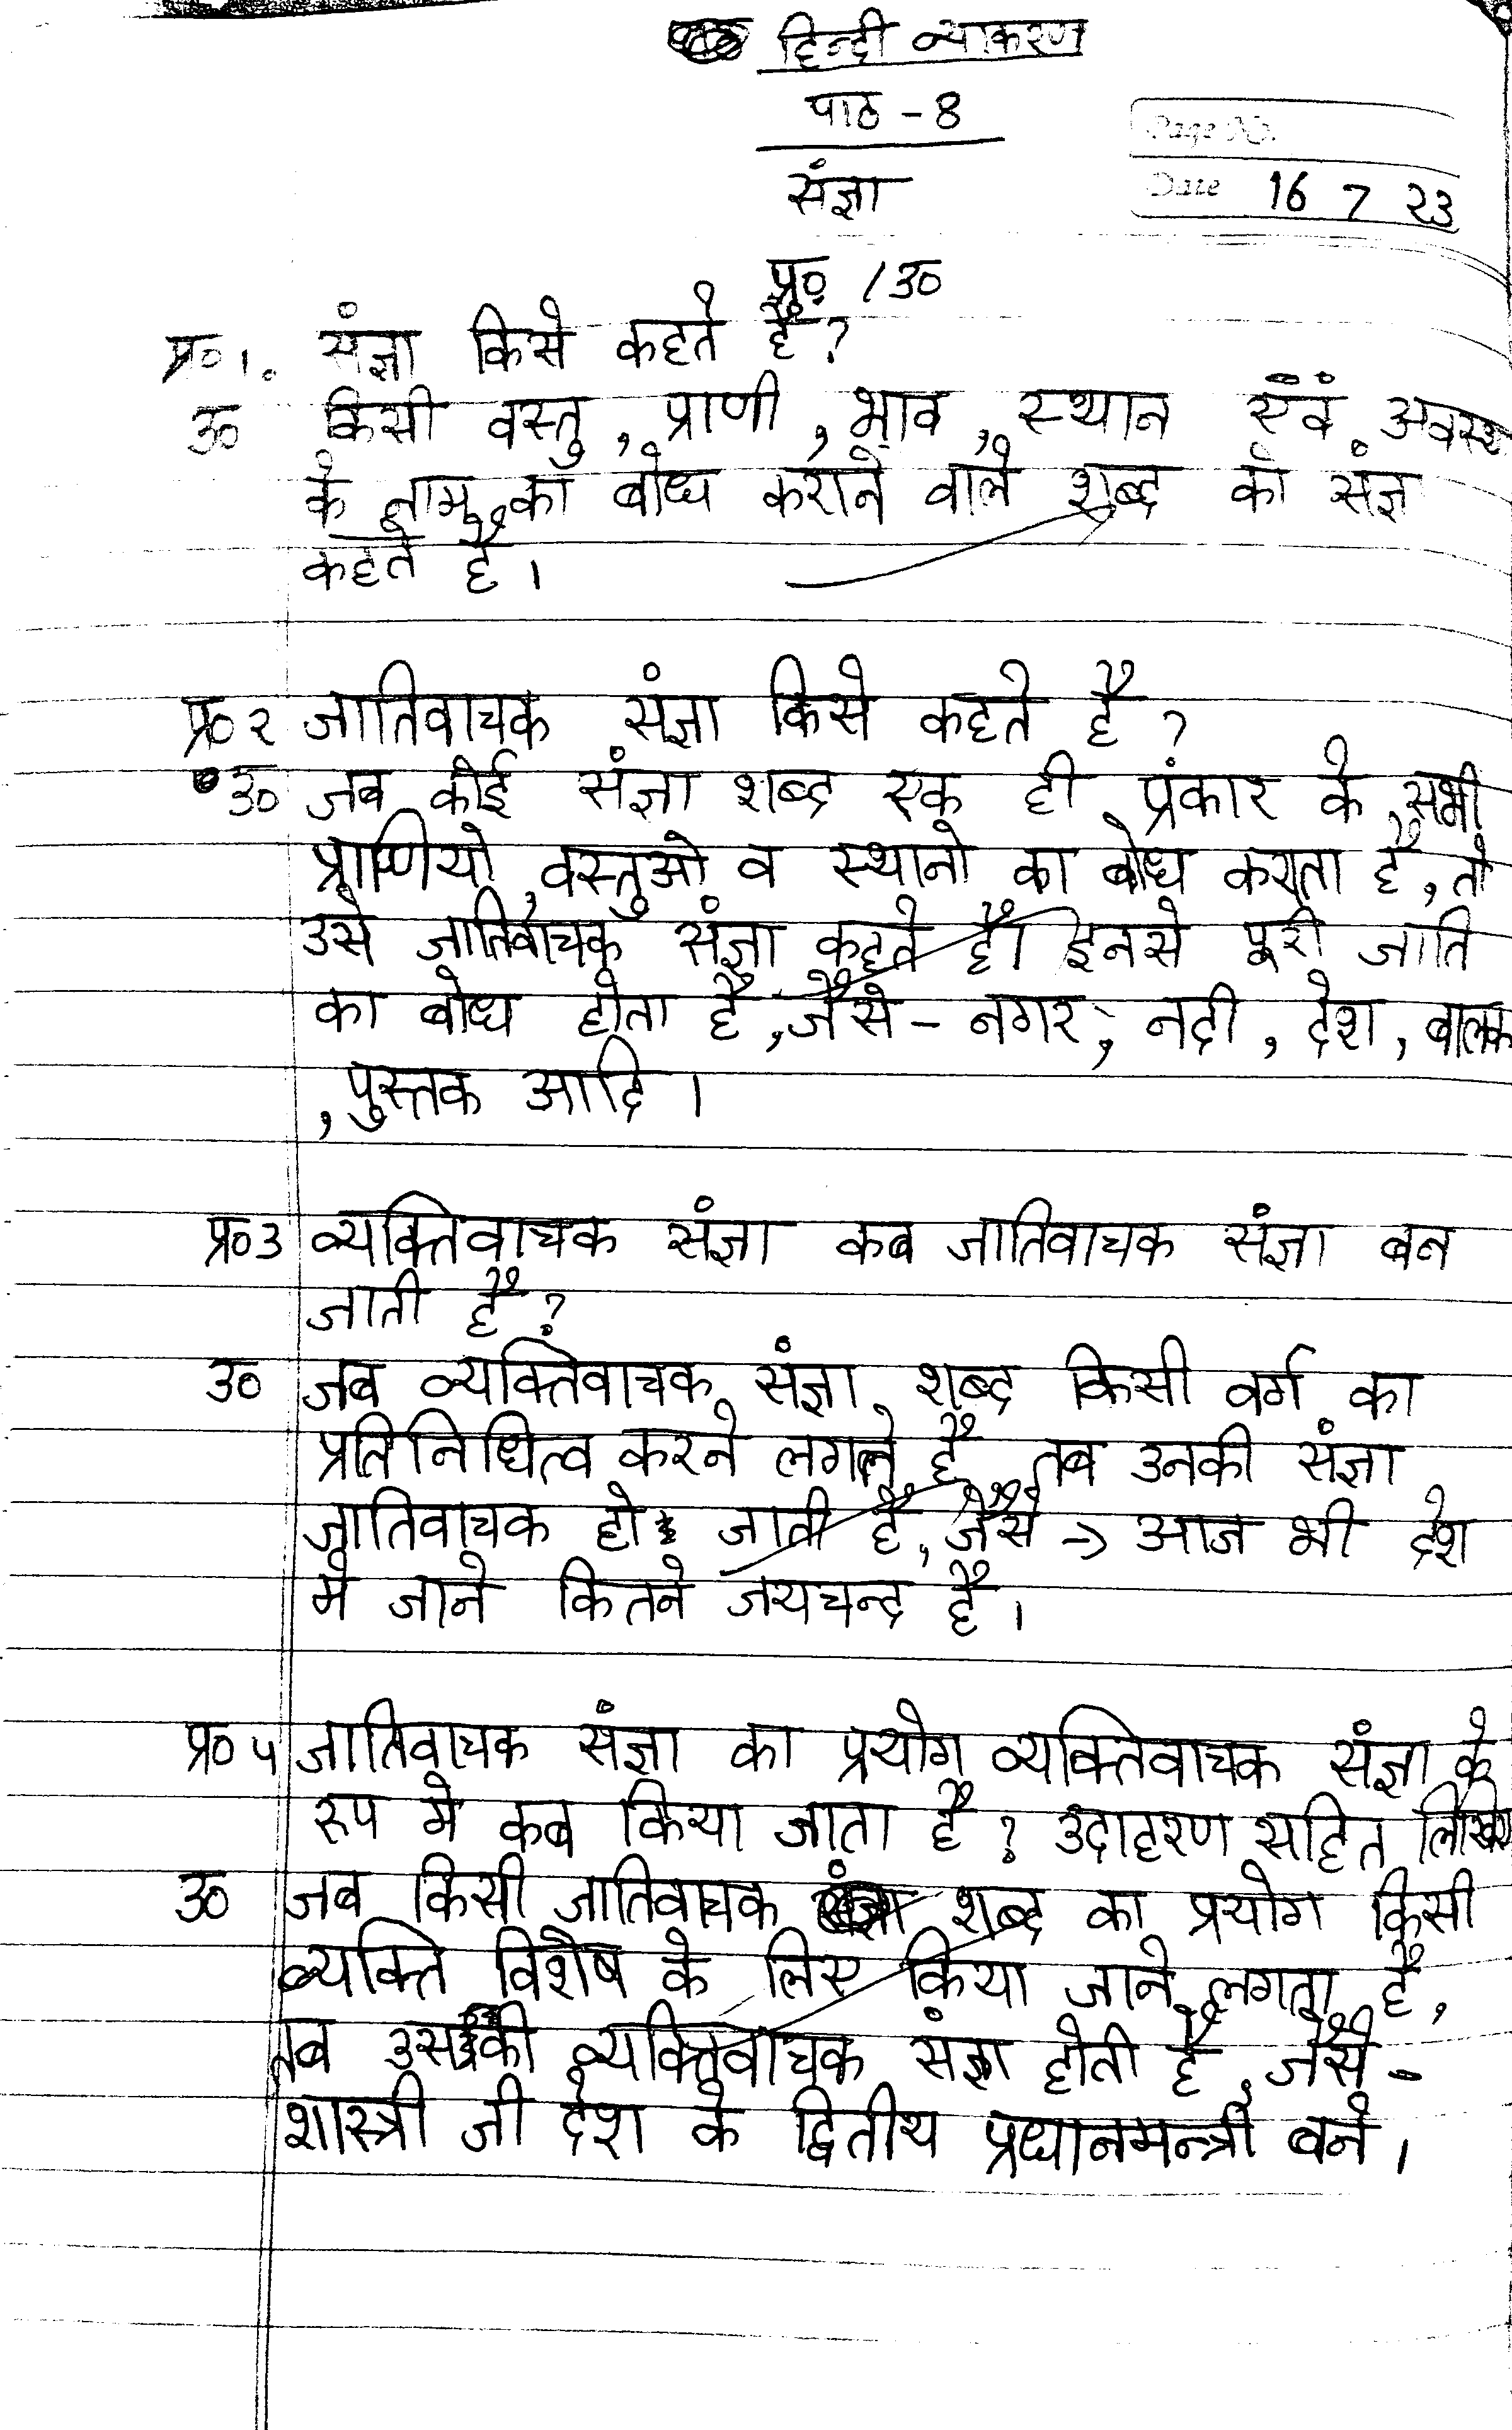 हिन्दी व्याकरण
पाठ - 8
Page No.
संज्ञा
Date 16 7 23
प्र० / उ०
प्र० 1. संज्ञा किसे कहते हैं?
उ० किसी वस्तु, प्राणी, भाव, स्थान एंवं अवस्था
के नाम का बोध कराने वाले शब्द को संज्ञा
कहते हैं।
प्र० २ जातिवाचक संज्ञा किसे कहते है ?
उ० जब कोई संज्ञा शब्द एक ही प्रंकार के सभी
प्राणियो, वस्तुओ व स्थानो का बोध कराता है, तो
उसे जातिवाचक संज्ञा कहते हैं। इनसे पूरी जाति
का बोध होता है, जैसे - नगर, नदी, देश, बालक
, पुस्तक आदि ।
प्र० 3 व्यक्तिवाचक संज्ञा कब जातिवाचक संज्ञा बन
जाती है?
उ० जब व्यक्तिवाचक संज्ञा शब्द किसी वर्ग का
प्रतिनिधित्व करने लगते है, तब उनकी संज्ञा
जातिवाचक हो जाती है, जैसे -> आज भी देश
मे जाने कितने जयचन्द्र है।
प्र० ५ जातिवाचक संज्ञा का प्रयोग व्यक्तिवाचक संज्ञा के
रुप मे कब किया जाता है ? उदाहरण सहित लिखिए
उ० जब किसी जातिवाचक शब्द का प्रयोग किसी
व्यक्ति विशेष के लिए किया जाने लगता है,
तब उसकी व्यक्तिवाचक संज्ञा होती है, जैसे -
शास्त्री जी देश के द्वितीय प्रधानमन्त्री बने।